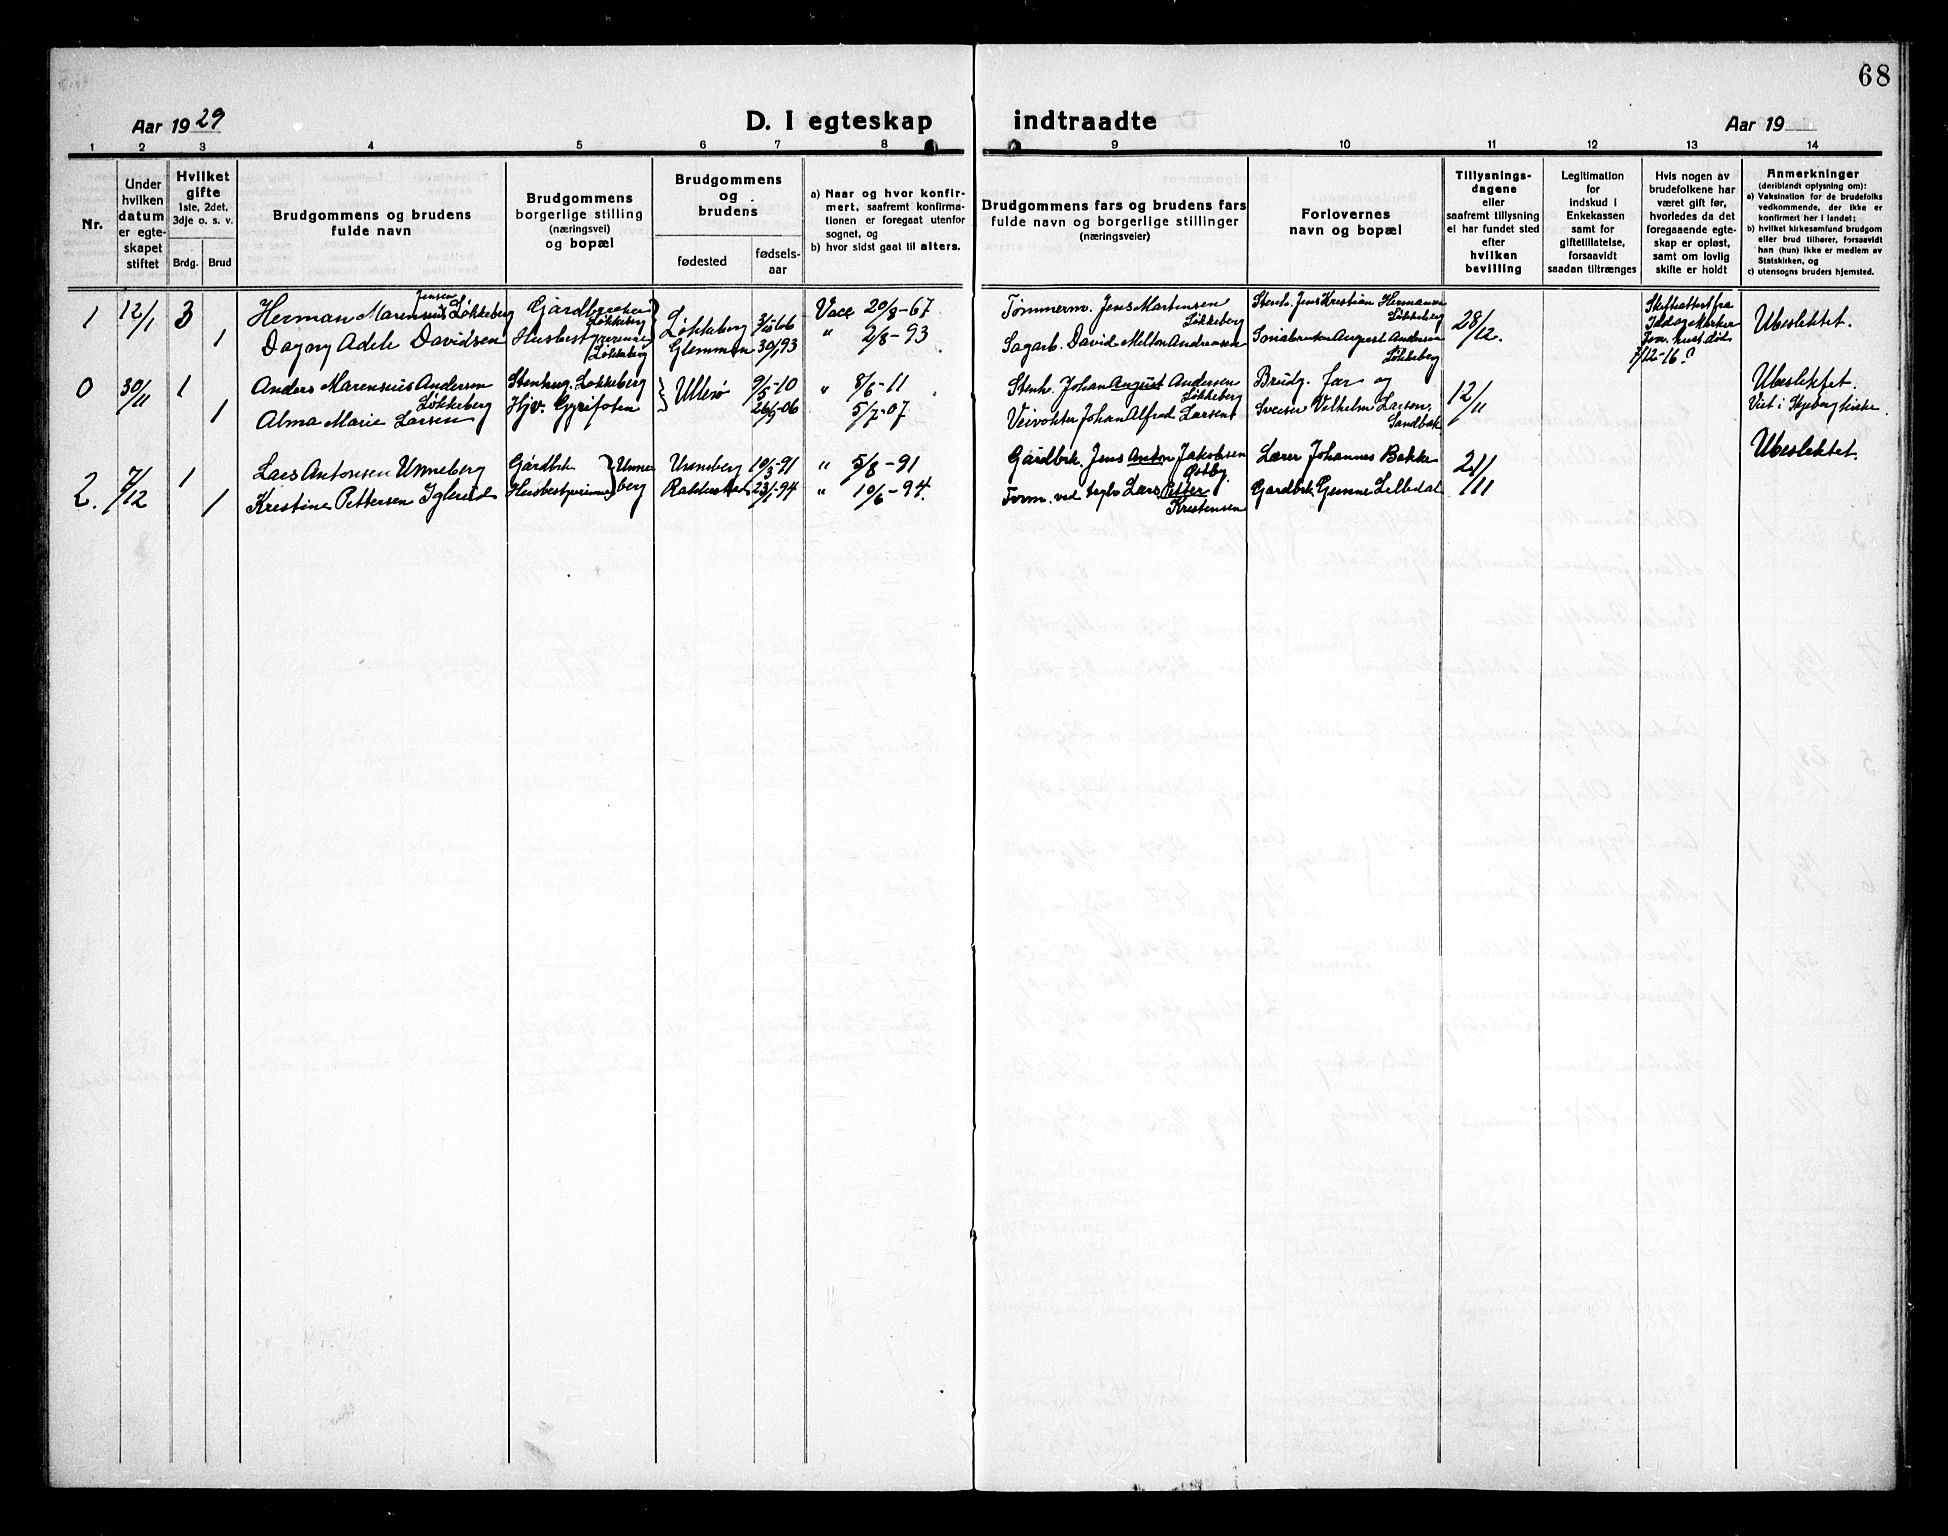 68
Aar 1929
D. I egteskap indtraadte
Aar 19
1 2 3 4 5 6 7 8 9 10 11 12 13 14
Nr.
Under
hvilken
datum
er egte-
skapet
stiftet
Hvilket
gifte
1ste, 2det,
3dje o. s. v.
Brdg. Brud
Brudgommens og brudens
fulde navn
Brudgommens
borgerlige stilling
(næringsvei)
og bopæl
Brudgommens
og
brudens
fødested
fødsels-
aar
a) Naar og hvor konfir-
mert, saafremt konfirma-
tionen er foregaat utenfor
sognet, og
b) hvor sidst gaat til alters.
Brudgommens fars og brudens fars
fulde navn og borgerlige stillinger
(næringsveier)
Forlovernes
navn og bopæl
Tillysnings-
dagene
eller
saafremt tillysning
ei har fundet sted
efter
hvilken
bevilling
Legitimation
for
indskud i
Enkekassen
samt for
giftetillatelse,
forsaavidt
saadan tiltrænges
Hvis nogen av
brudefolkene har
været gift før,
hvorledes da det
foregaaende egte-
skap er opløst,
samt om lovlig
skifte er holdt
Anmerkninger
(deriblandt oplysning om):
a) Vaksination for de brudefolks
vedkommende, der ikke er
konfirmert her i landet;
b) hvilket kirkesamfund brudgom
eller brud tilhører, forsaavidt
han (hun) ikke er medlem av
Statskirken, og
c) utensogns bruders hjemsted.
1 12/1 3 Herman Marensius Jensen Løkkeberg Gårdbruker Løkkeberg Løkkeberg 3/10 66 20/8-67 Tømmerm. Jens Martensen Løkkeberg Stenh. Jens Kristian Hermansen Løkkeberg 28/12. Skifteattest fra
1 Dagny Adele Davidsen Husbestyrerinne Løkkeberg Glemmen 30/1 93 " 2/8-93 Sagarb. David Milton Andreassen August Andersen Løkkeberg død 7/12-16. Ubeslektet.
0 30/11 1 Anders Marensius Andersen Løkkeberg Stenhug. Løkkeberg Ullerø 9/5-10 " 8/6-11 Stenh. Johan August Andersen Løkkeberg Brudg. far og 12/11 Ubeslektet.
1 Alma Marie Larsen Hjv. 26/5-06 5/7-07 Veivokter Johan Alfred Larsen Sveiser Vilhelm Larsen, Sandbak Viet i Skjeberg kirke.
2. 7/12 1 Lars Antonsen Unneberg Gårdbrk. Unneberg Unneberg 10/3-91 " 5/8-91 Gårdbrk. Jens Anton Jakobsen Østby. Lærer Johannes Bakke 21/11 Ubeslektet.
1 Kristine Pettersen Iglerød Husbestyrerinne 23/1-94 " 10/6-94. Form. ved teglv. Lars Petter Kristensen Gårdbrk. Gunnar Lilledal